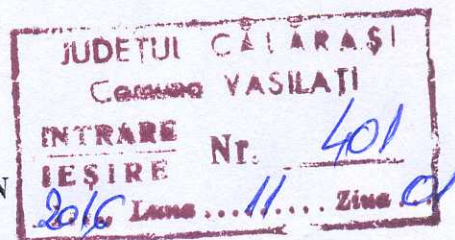 JUDEŢUL CĂLĂRAŞI
Comuna VASILAŢI
INTRARE
IEŞIRE Nr. 401
2016 Luna ... 11 .... Ziua 01
N